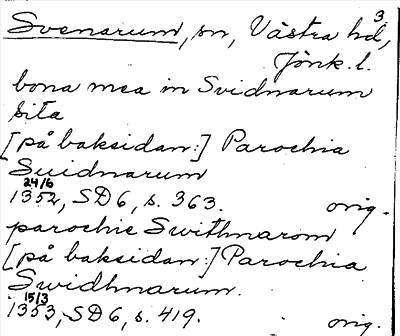 3.
Svenarum, sn, Västra hd,
Jönk. l.
bona mea in Svidnarum
sita
[på baksidan:] Parochia
Suidnarum
24/6
1352, SD 6, s. 363. orig.
parochie Swithnarom
[på baksidan:] Parochia
Swidhnarum.
15/3
1353, SD 6, s. 419. orig.